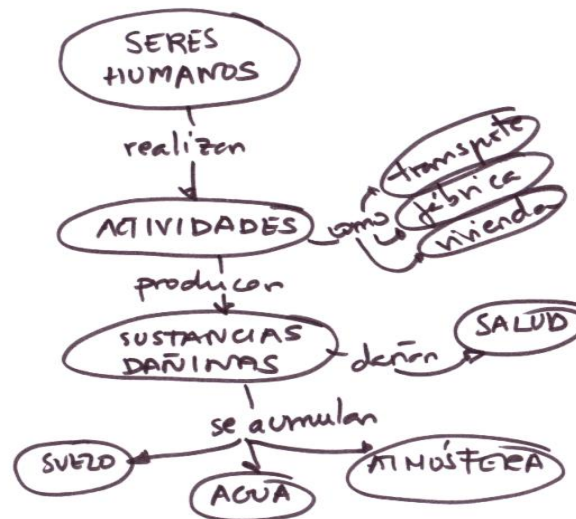 SERES
HUMANOS
realizan
ACTIVIDADES
como
transpote
fábrica
vivienda
producen
SUSTANCIAS
DAÑINAS
dañan
SALUD
se acumulan
SUELO
AGUA
ATMÓSFERA